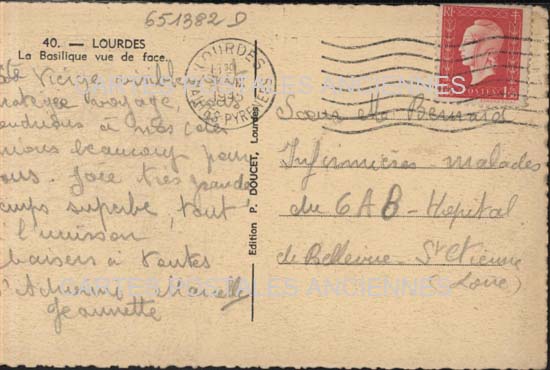 651382 D
40. — LOURDES
La Basilique vue de face.
Vierge
voyage,
à nos côtés
beaucoup pour
vous. Joie très grande
temps superbe, tout
à l'unisson
baisers à toutes
Marcelle
Jeannette
Edition P. DOUCET, Lourdes
LOURDES
Htes PYRENEES
RF
POSTES
Sœur Ste Bernard
Infirmières malades
du 6 A B - Hopital
de Bellevue - St Etienne
(Loire)
CARTES POSTALES ANCIENNES
CARTES POSTALES ANCIENNES